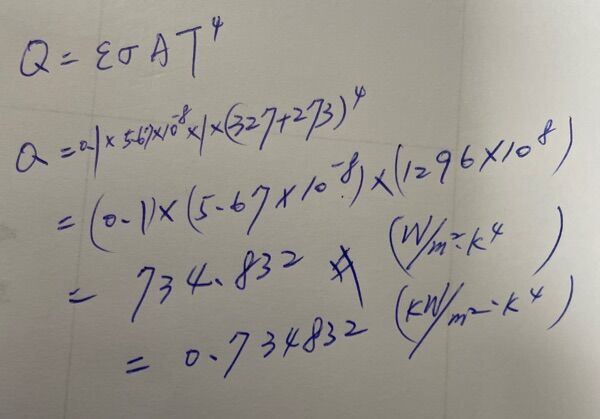 Q = εσAT⁴
Q = 0.1 × 5.67 × 10⁻⁸ × 1 × (327+273)⁴
= (0.1) × (5.67 × 10⁻⁸) × (1296 × 10⁸)
= 734.832 (W/m²·K⁴)
= 0.734832 (KW/m²·K⁴)